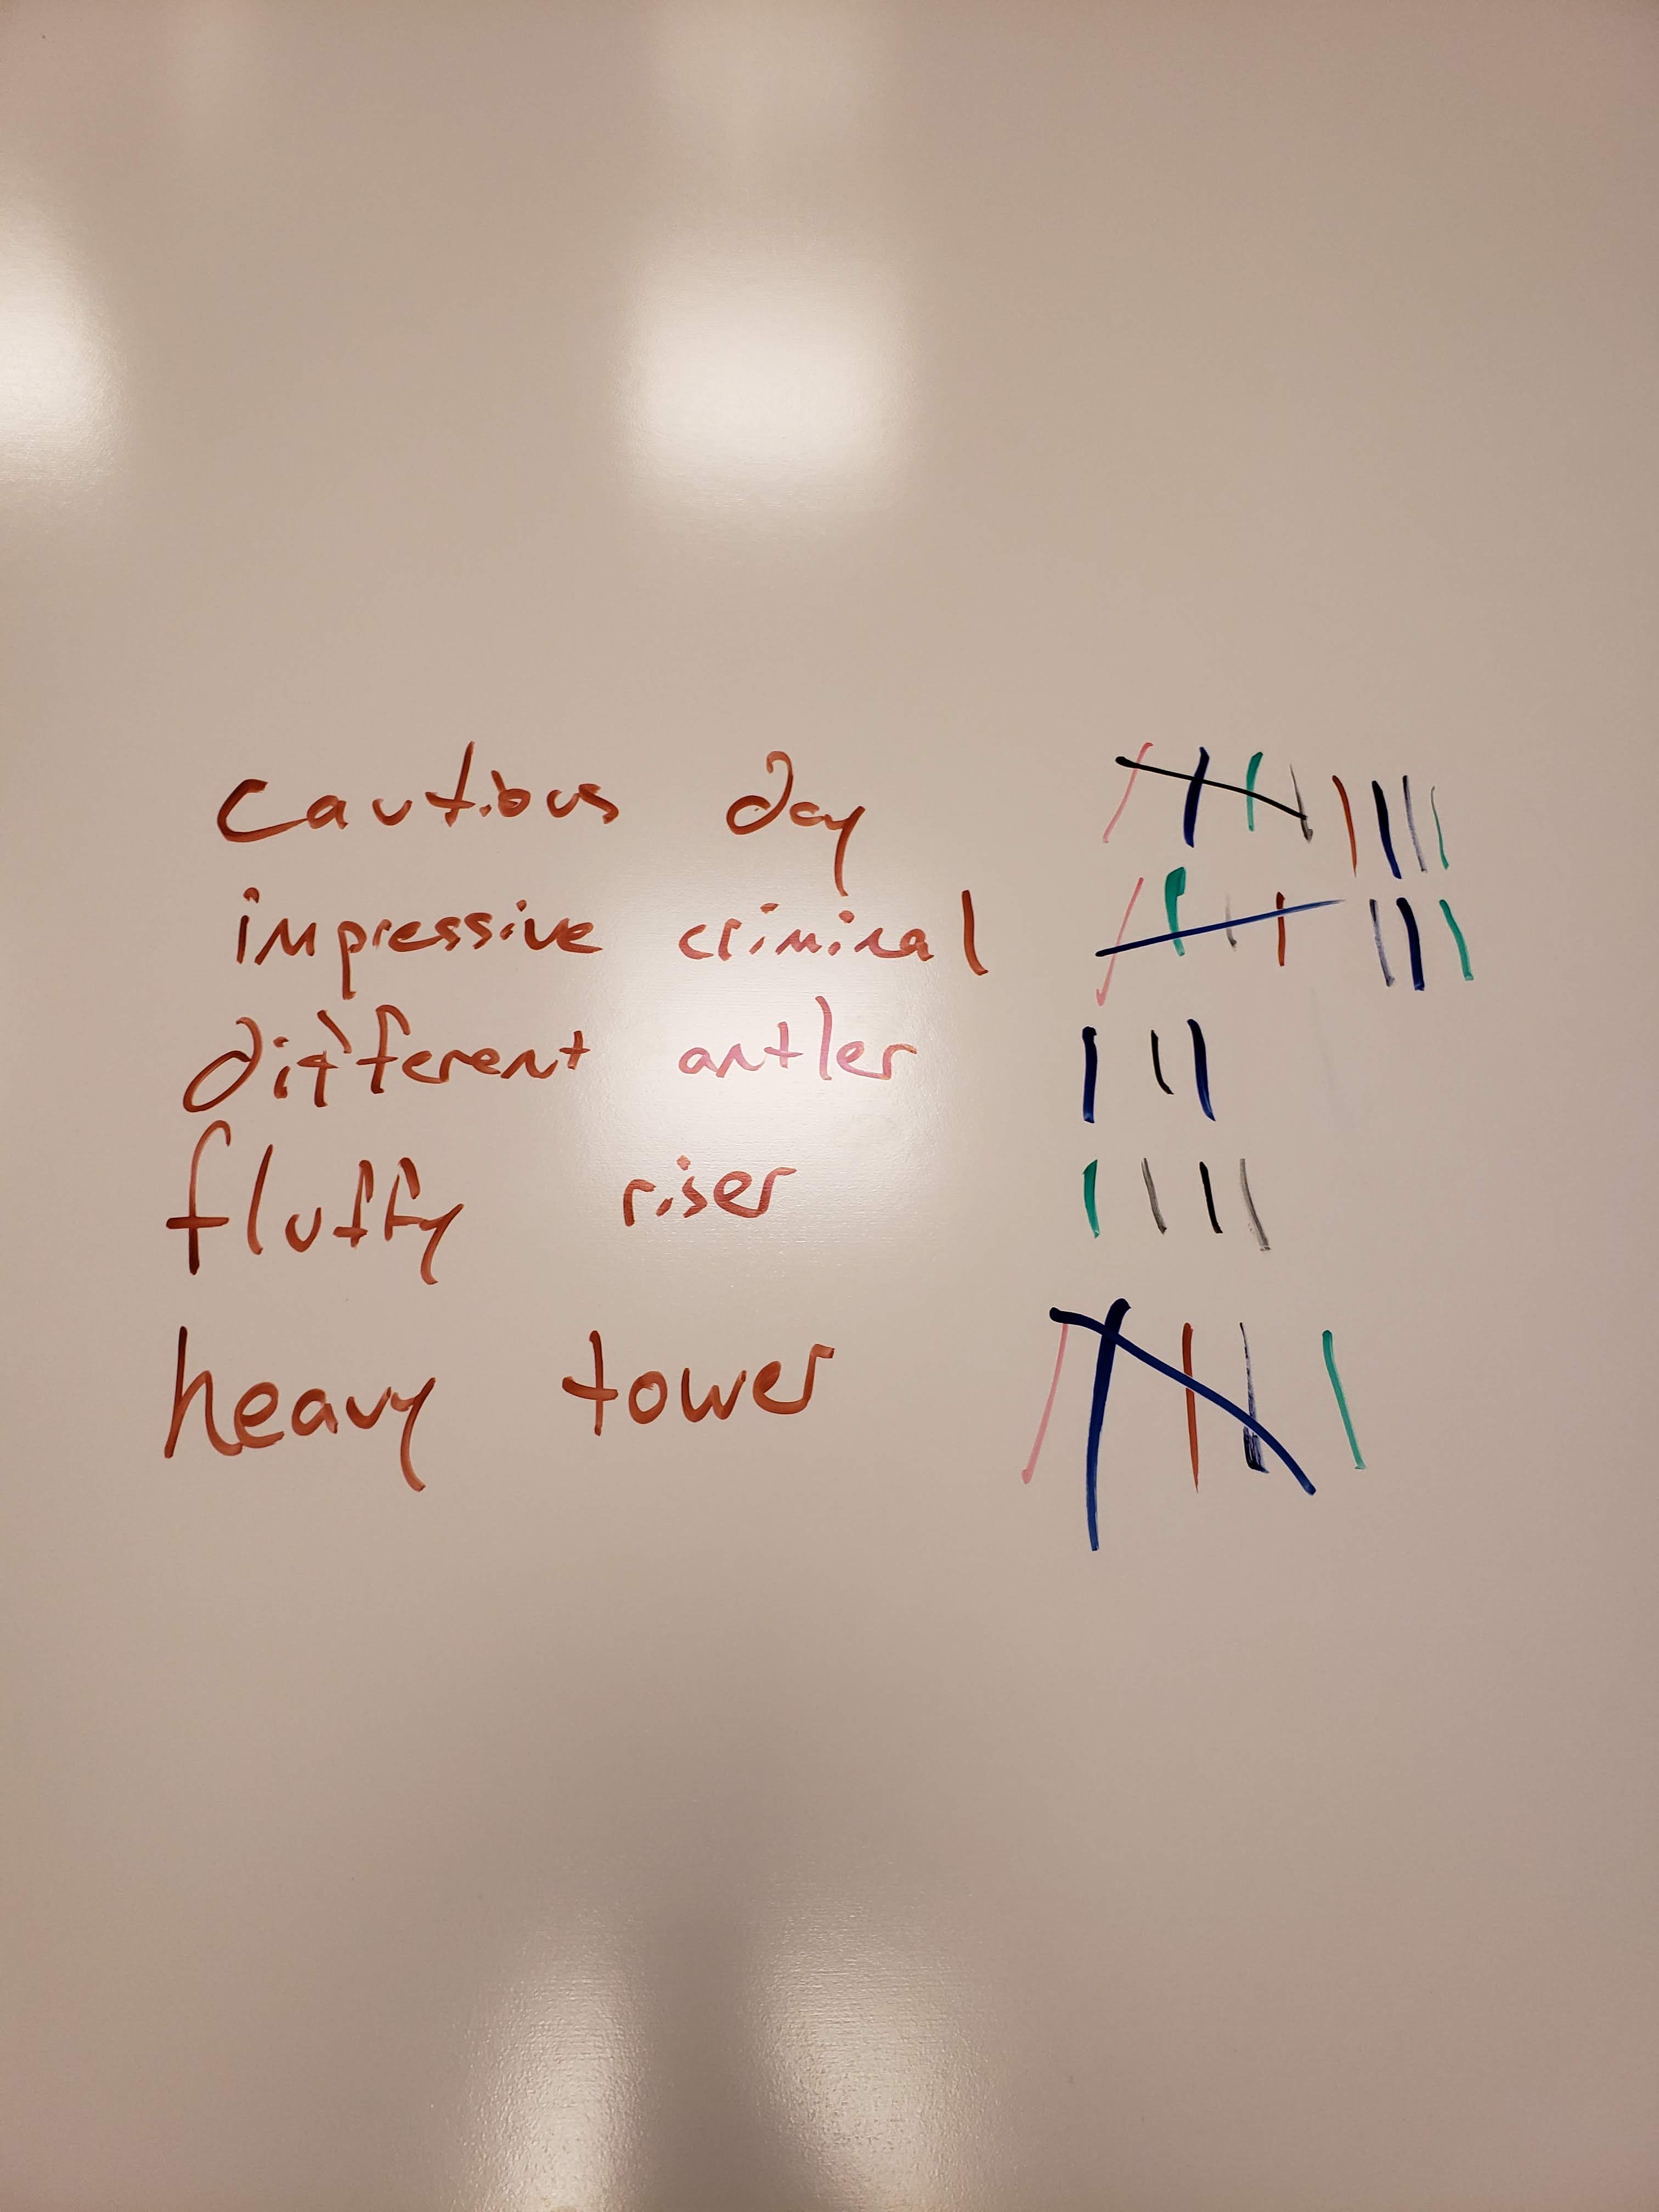 cautious day
impressive criminal
different antler
fluffy riser
heavy tower